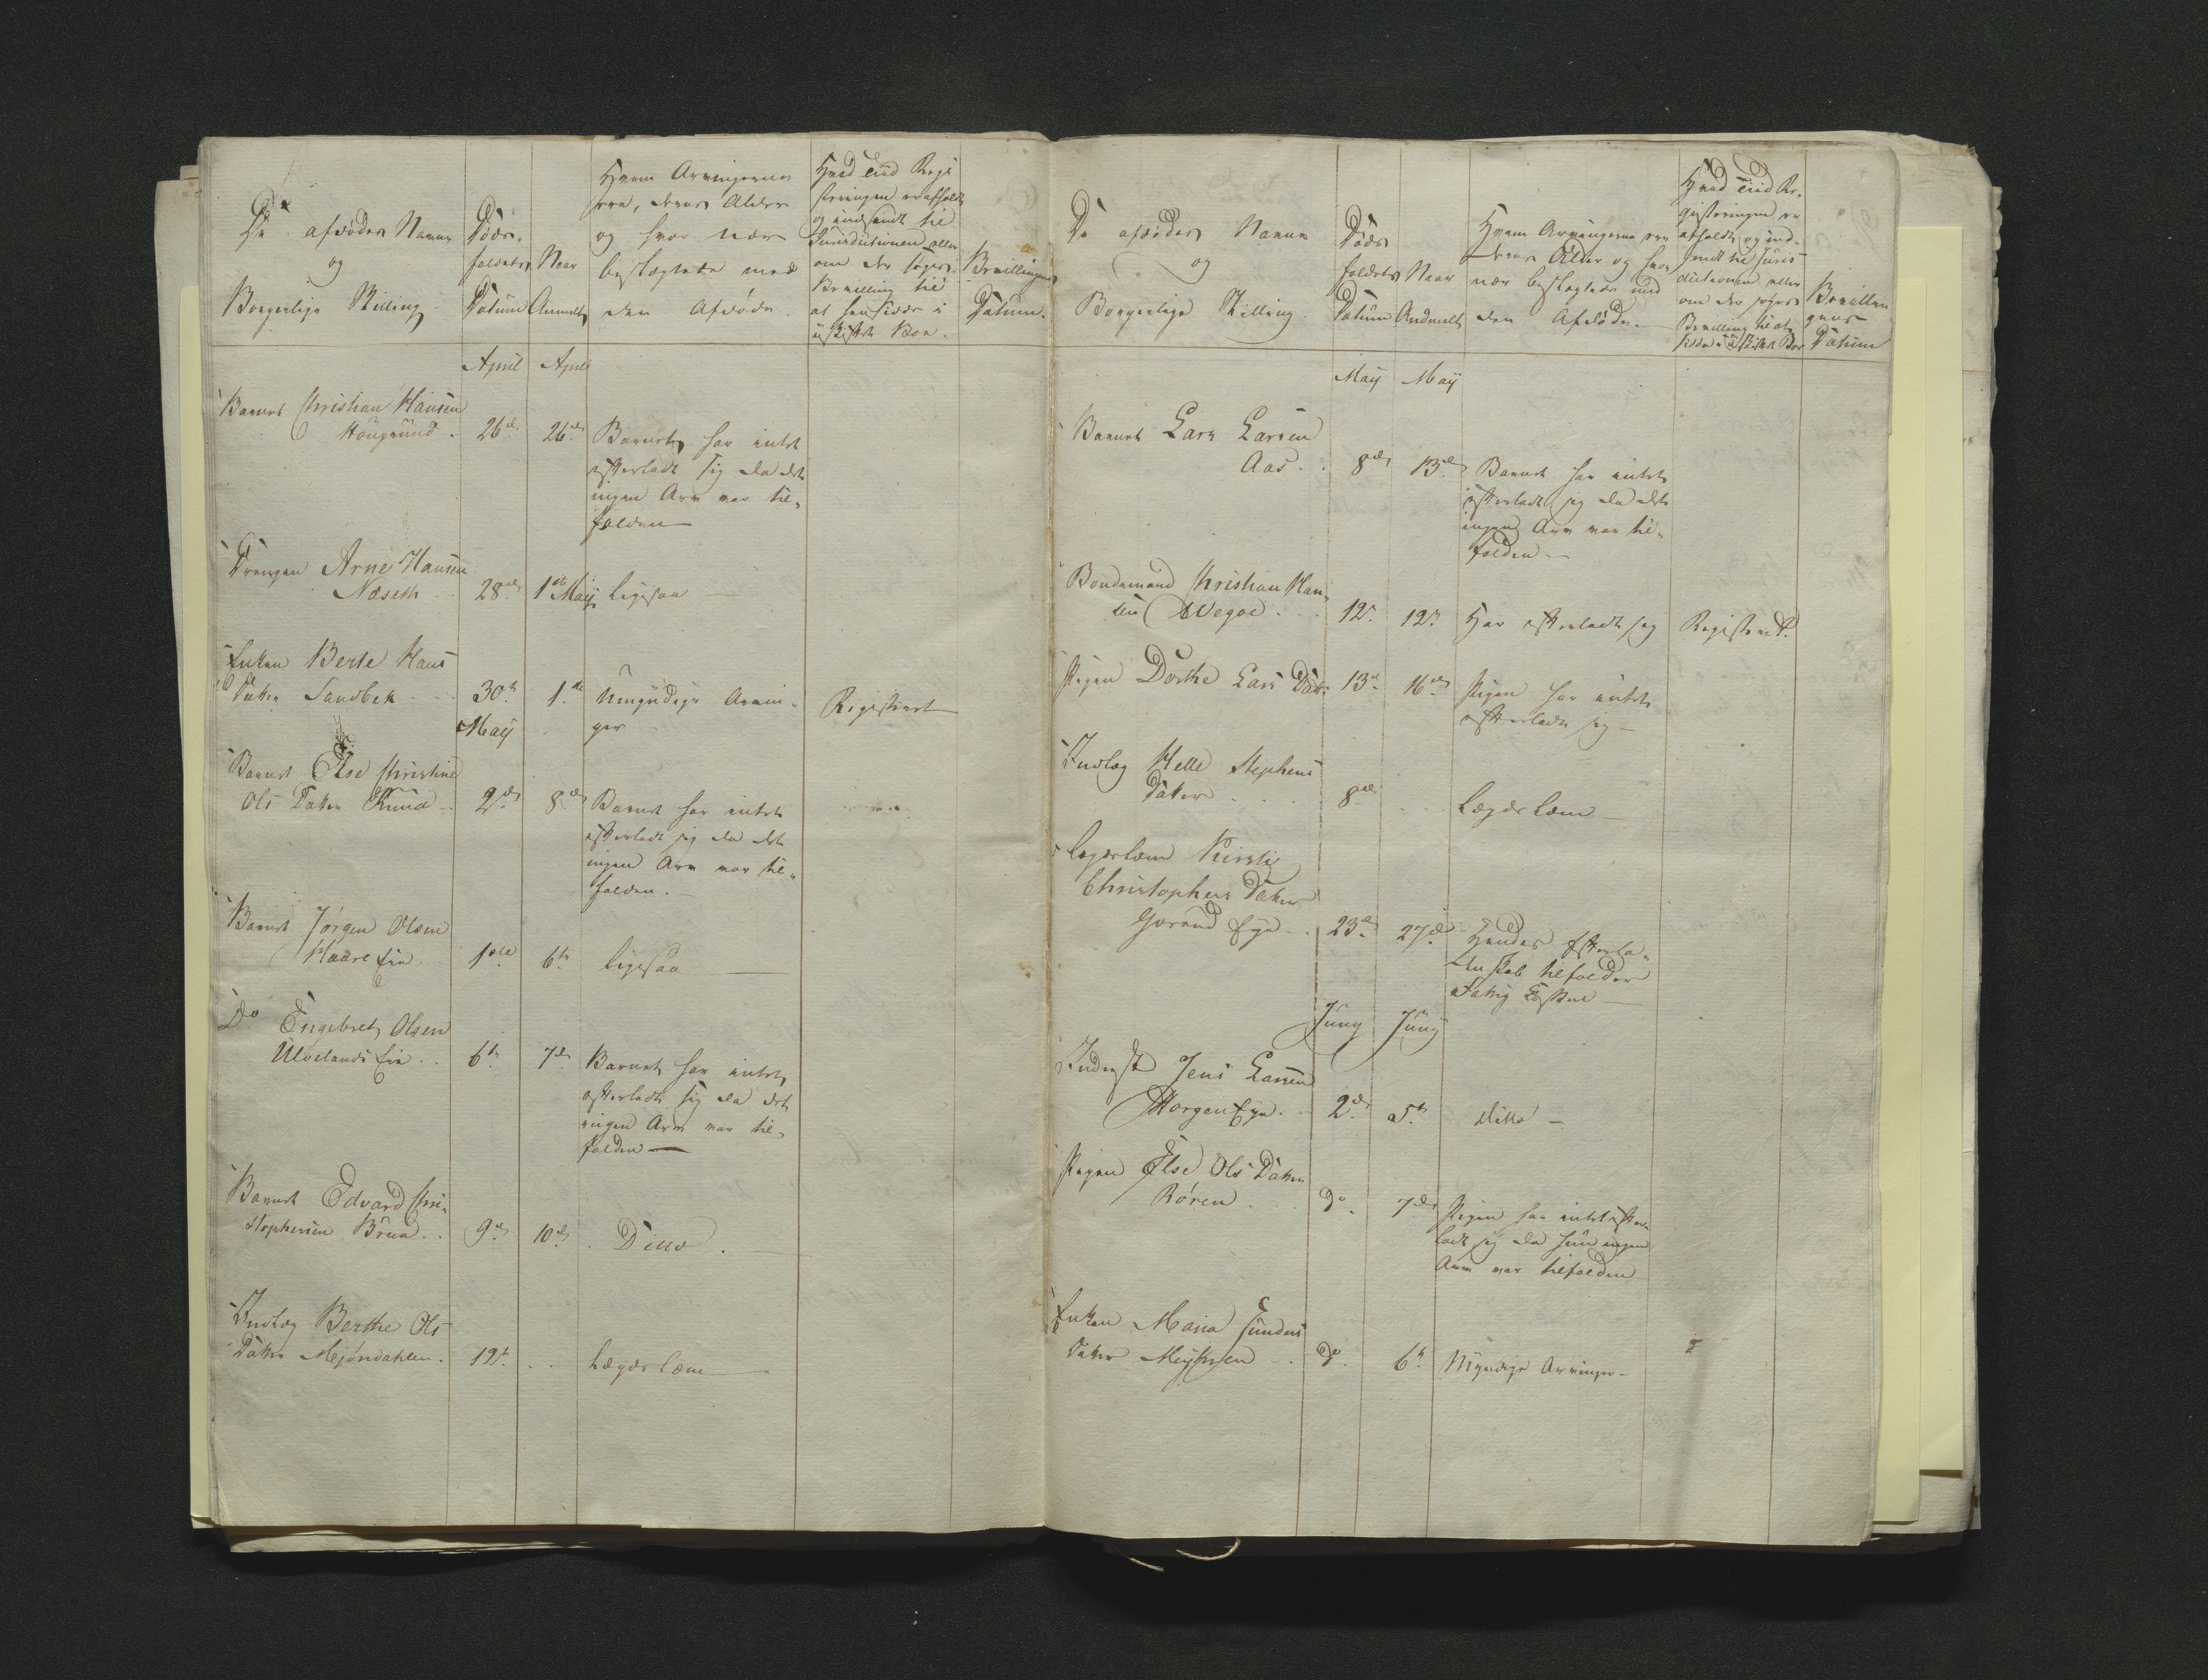 De afdødes Navne
og
Borgerlige Stilling
Døds-
faldets
Datum
Naar
Anmeldt
Hvem Arvingerne
ere, deres Alder
og hvor nær
beslægtede med
den Afdøde.
Hvad Tiid Regi
streringen er afholdt
og indsendt til
Jurisdictionen eller
om der søges
Bevilling til
at hensidde i
uskiftet Boe.
Bevillingens
Datum.
April April
Barnet Christian Hansen
Hougsund. 26de 26de Barnet har intet
efterladt sig da det
ingen Arv var til-
falden
Drengen Arne Hansen
Næseth 28de 1ste Maij ligesaa
Enken Berte Hans
Datter Sandbek 30te 1ste Umyndige Arvin-
ger
Registeret
Maij
Barnet Else Christine
Ols Datter Krua 2de 8de Barnet har intet
efterladt sig da det
ingen Arv var til-
falden.
Barnet Jørgen Olsen
Haare Eie. 1ste 6te ligesaa
Do Engebret Olsen
Ulvelands Eie 6te 7de Barnet har intet
efterladt sig da det
ingen Arv var til-
falden
Barnet Edvard Chri-
stophersen Brua 9de 10de Ditto.
Indlæg Berthe Ols
Datter Mejøndahlen. 12te Lægds Lem
De afdødes Navne
og
Borgerlige Stilling.
Døds
faldets
Datum
Naar
Andmelt
Hvem Arvingerne ere
deres Alder og hvor
nær beslægtede med
den Afdøde.
Hvad Tiid Re-
gistreringen er
afholdt og ind-
sendt til Juris-
dictionen eller
om der søges
Bevilling til at
sidde i uskiftet Boe
Bevillin-
gens
Datum
Maij Maij
Barnet Lars Larsen
Aas. 8de 13de Barnet har intet
efterladt sig da det
ingen Arv var til-
falden
Bondemand Christian Han-
sen Wegge 12te 12te Har efterladt sig Registeret.
Pigen Dorthe Lars Datter 13de 16de Pigen har intet
efterladt sig
Indlæg Helle Stephens
Datter 8de Lægds Lem
Lægdslem Kirstie
Christophers Datter
Gorud Eye 23de 27de Hendes Efterla-
denskab tilfalder
Fattig Cassen
Juny Juny
Inderst Jens Larsen
Horgen Eye. 2de 5te ditto
Pigen Else Ols Datter
Røren do 7de Pigen har intet efter-
ladt sig da hun ingen
Arv var tilfalden
Enken Maria Gunders
Datter do 6te Myndige Arvinger